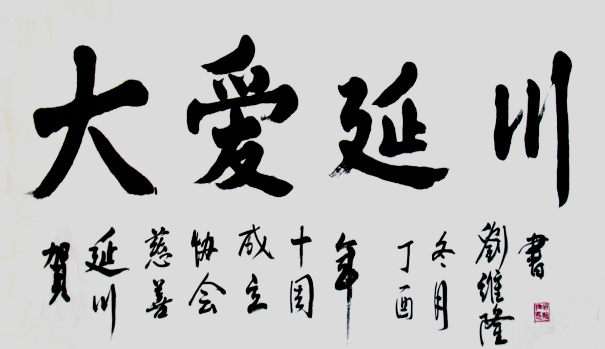 大爱延川
賀
延川
慈善
协会
成立
十周
年
丁酉
冬月
劉維隆
書